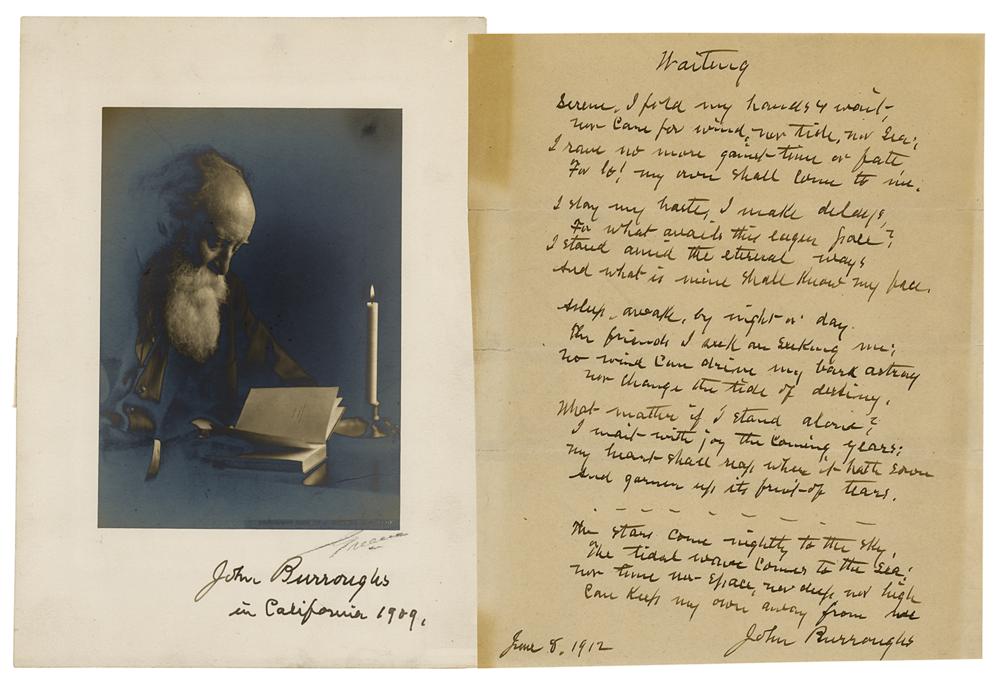 John Burroughs
in California 1909.
Waiting
Serene, I fold my hands & wait,
nor Care for wind, nor tide, nor Sea;
I rave no more gainst time or fate
For lo! my own shall Come to me.
I stay my haste, I make delays,
For what avails this eager pace?
I stand amid the eternal ways
And what is mine shall Know my face.
Asleep, awake, by night or day.
The friends I seek are Seeking me;
No wind Can drive my bark astray
nor Change the tide of destiny.
What matter if I stand alone?
I wait with joy the Coming years;
My heart shall reap when it hath Sown
And garner up its fruit of tears.
The Stars Come nightly to the Sky,
The tidal wave Comes to the Sea;
Nor time nor space, nor deep, nor high
Can Keep my own away from me
John Burroughs
June 8, 1912